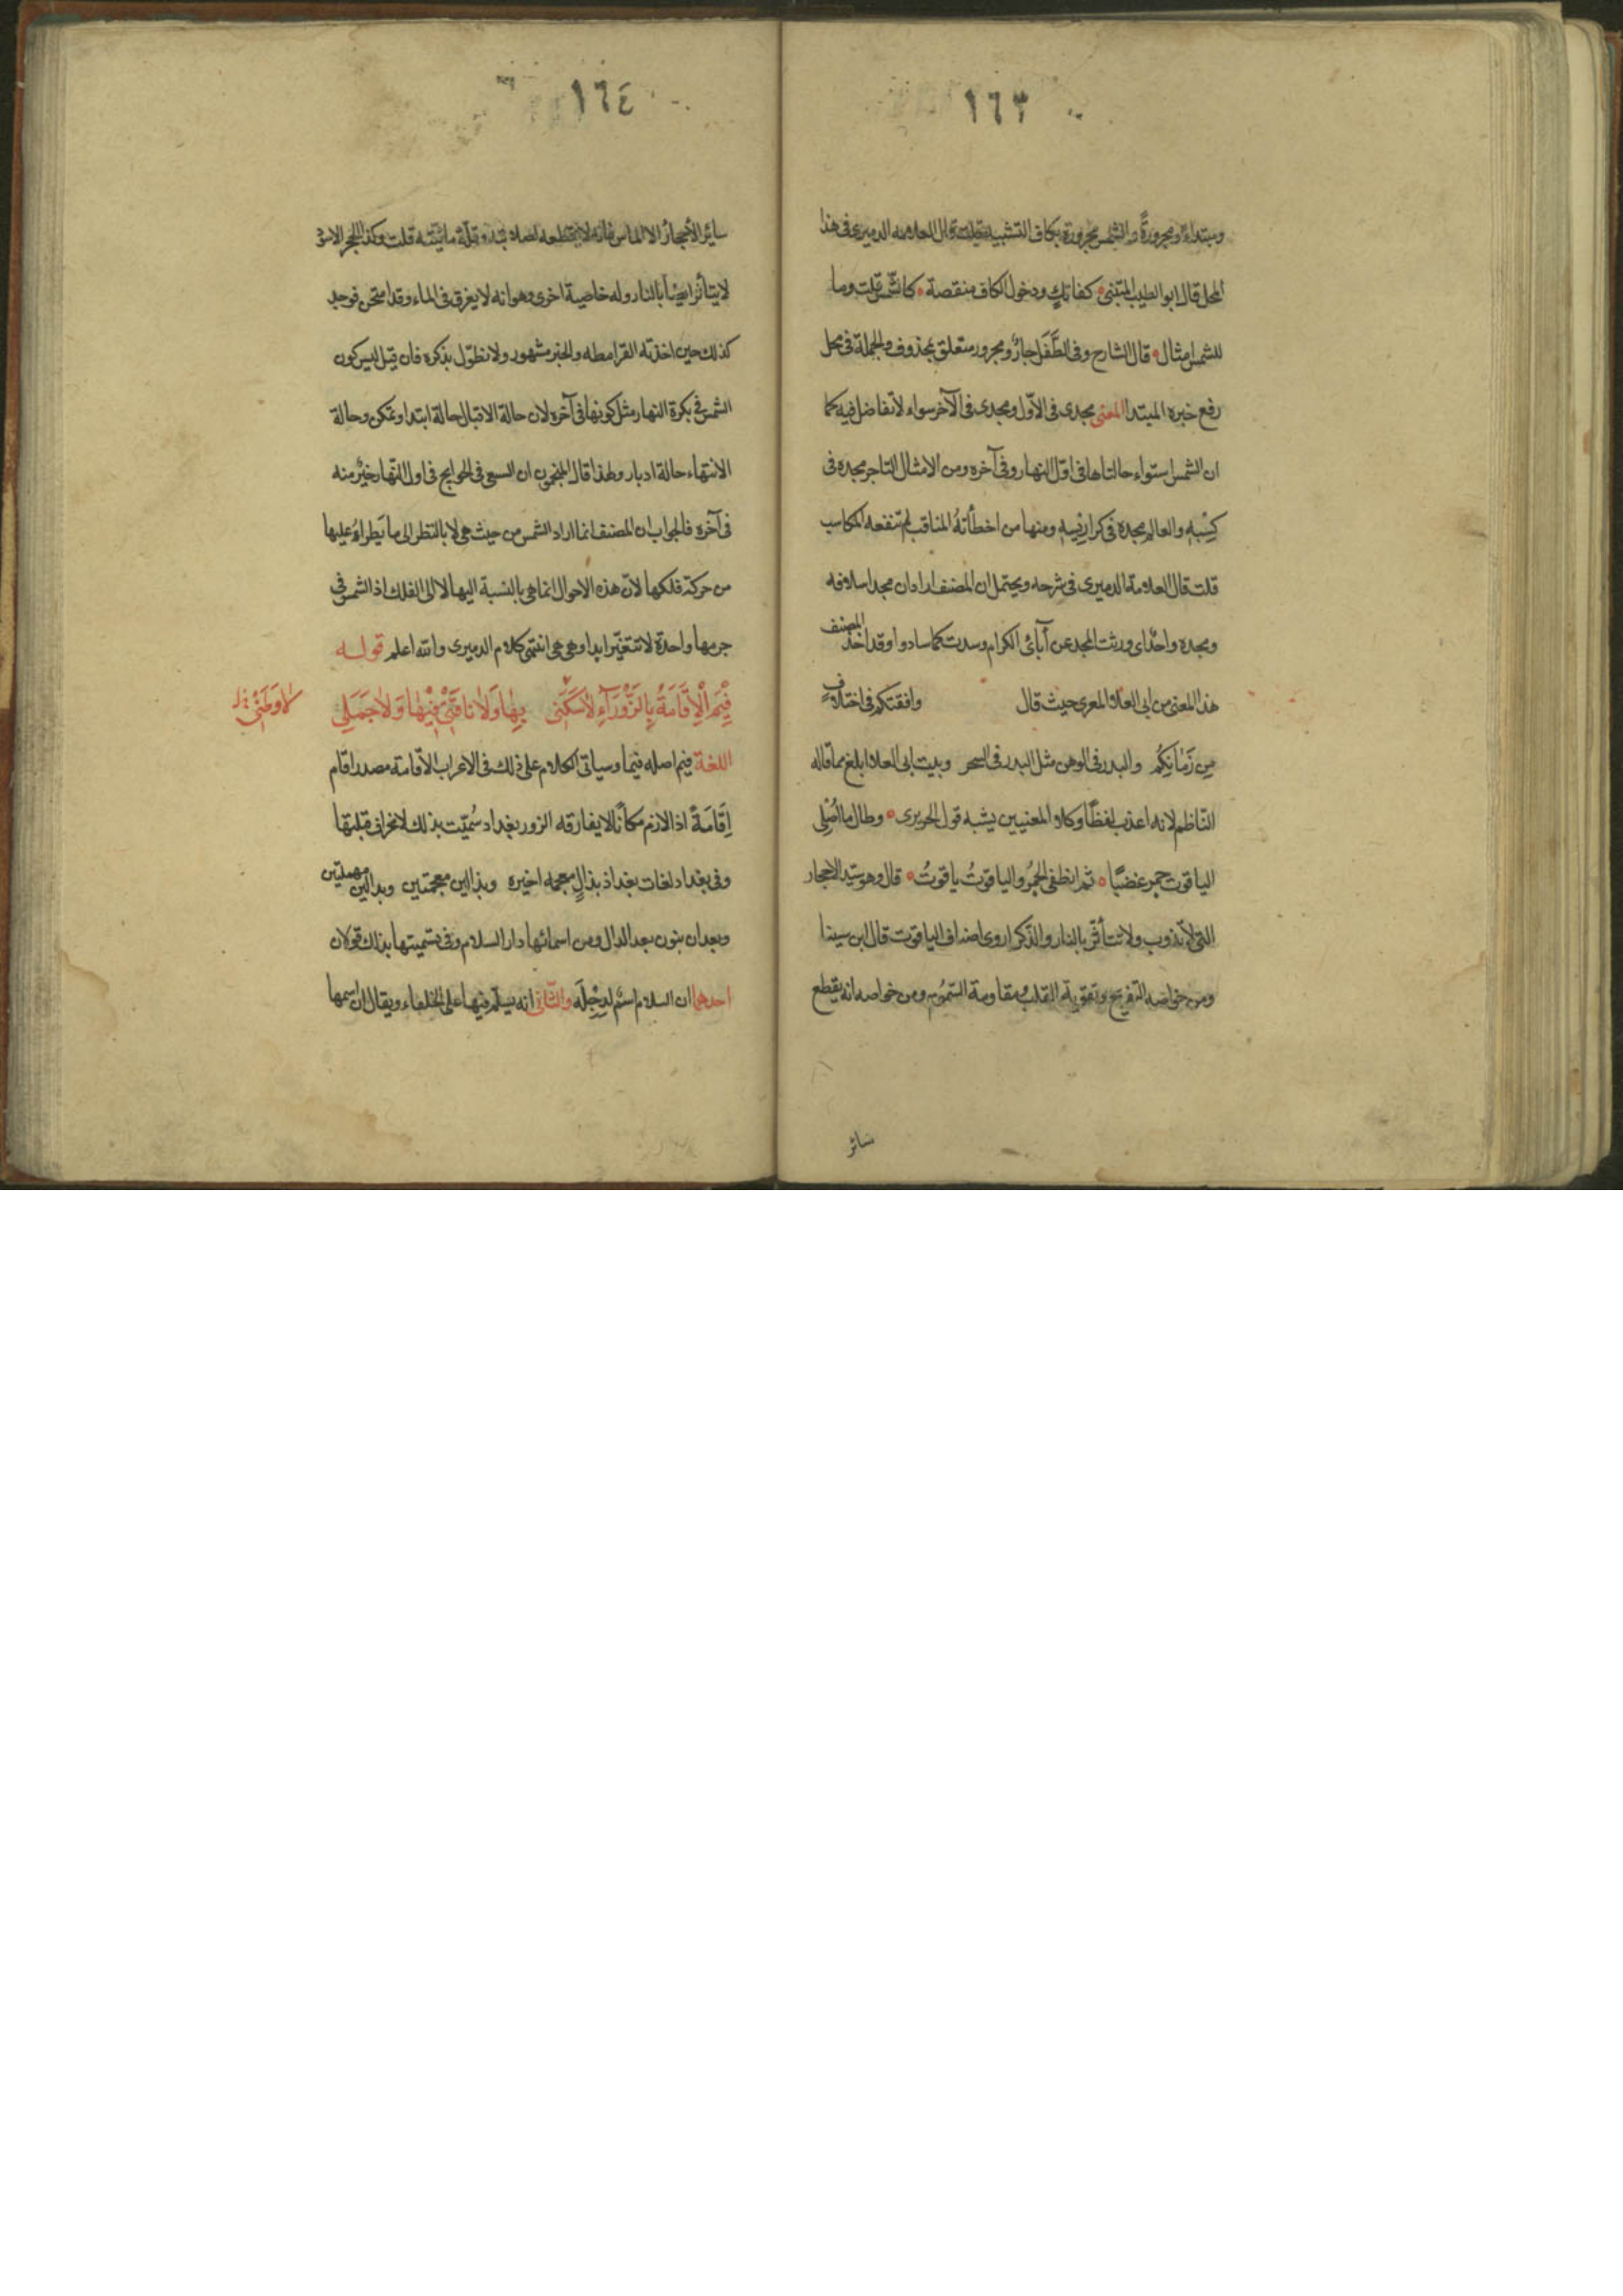 ١٦٣
ومبتداء ومجرورة والشمس مجرورة بكاف التشبيه قلت قال العلامه الدميرى فى هذا
المحل قال ابو الطيب المتنبى كفاتك ودخول الكاف منقصة كالشمس قلت وما
للشمس امثال قال الشارح وفى الطَّفَل جارٌ ومجرور متعلق بمحذوف والجملة فى محل
رفع خبره المبتدا المعنى مجدى فى الاوّل ومجدى فى الآخر سواء لا تفاضل فيه كما
ان الشمس استواء حالتاها فى اوّل النهار وفى آخره ومن الامثال التاجر مجده فى
كِسْبِه والعالم مجده فى كراريسه ومنها من اخطأته المناقب لم تنفعه المكاسب
قلت قال العلامة الدميرى فى شرحه ويحتمل ان المصنف اراد ان مجد اسلافه
ومجده واحد اى ورثت المجد عن آبائى الكرام وسدت كما سادوا وقد اخذ المصنف
هذا المعنى من ابى العلا المعرى حيث قال وافقتكم فى اختلافٍ
مِن زَمَانِكُم والبدر فى الوهن مثل البدر فى السحر وبيت ابى العلا ابلغ مما قاله
النّاظم لانه اعذب لفظًا وكلا المعنيين يشبه قول الحريرى وطال ما اُصْلِى
الياقوت جمر غضبًا ثم انطفى الجمرُ والياقوتُ ياقوتُ قال وهو سيّد الاحجار
التى لا تذوب ولا تتأثر بالنار والذكر اروى اصناف الياقوت قال ابن سينا
ومن خواصه التفريح وتقوية القلب ومقاومة السّموُم ومن خواصه انه يقطع
سائر
١٦٤
سائر الأحجار الا الماس فانه لا يقطعه لصلابته وقلّة مائيته قلت وكذا الحجر
لا يتأثر ايضًا بالنار وله خاصية اخرى وهو انه لا يغرق فى الماء وقد امتحن فوجد
كذلك حين اخذته القرامطه والخبر مشهور ولا نطوّل بذكره فان قيل ليس كون
الشمس فى بكرة النهار مثل كونها فى آخره لان حالة الاقبال حالة ابتدا وتمكن وحالة
الانتهاء حالة ادبار ولهذا قال المنجمون ان السعى فى الحوايج فى اول النّهار خيْر منه
فى آخره فالجواب ان المصنف انما اراد الشمس من حيث هى لا بالنظر الى ما يَطراءُ عليها
من حركة فلكها لانّ هذه الاحوال انما هى بالنسبة اليها لا الى الفلك اذ الشمس فى
جرمها واحدة لا تتغيّر ابدا وهى هى انتهى كلام الدميرى والله اعلم قولــه
فِيْمَ الْاِقَامَةُ بِالزَّوْرَآءِ لَاسَكَنِى بِهَا وَلَا نَاقَتِىْ فِيْهَا وَلَا جَمَلِى
لا وَطَنِىْ
اللغة فيم اصله فيما وسياتى الكلام على ذلك فى الاعراب الاقامة مصدر اقام
اِقَامَةً اذا لازم مكانًا لا يفارقه الزور بغداد سُميّت بذلك لانحراف قبلتها
وفى بغداد لغات بغداذ بذالٍ معجمه اخيره وبذالين معجمتين وبدالين مهملتين
وبعدان بنون بعد الدال ومن اسمائها دار السلام وفى تسميتها بذلك قولان
احدهما ان السلام اسْم لدِجْلَة والثّانى انه يسلّم فيها على الخلفاء ويقال ان اسمها